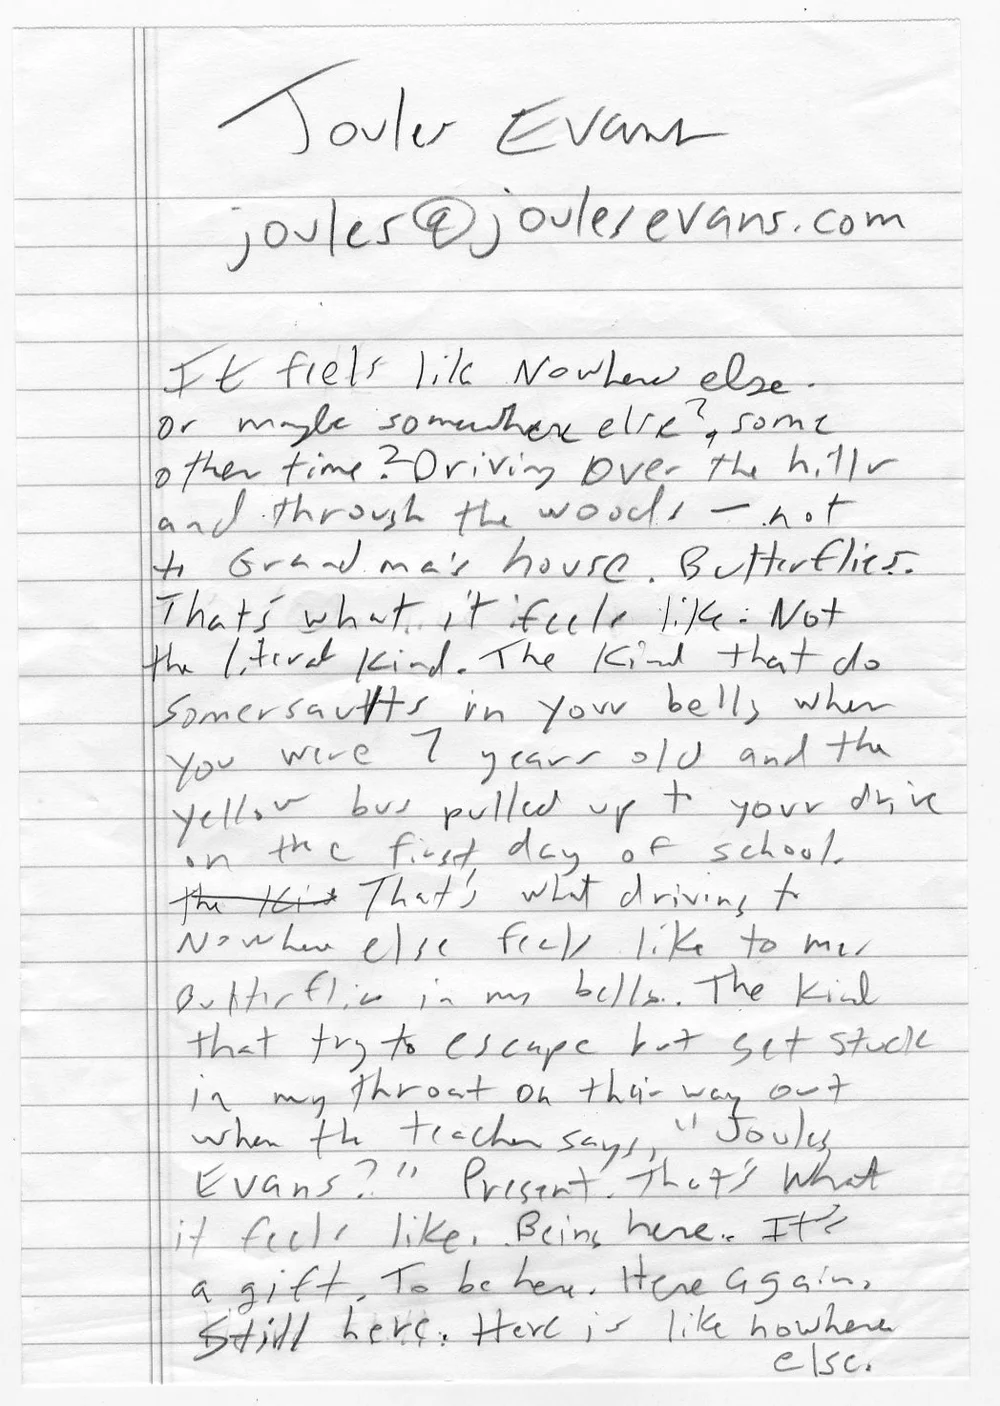 Joules Evans
joules@joulesevans.com
It feels like Nowhere else.
or maybe somewhere else?, some
other time? Driving over the hills
and through the woods — not
to Grandma's house. Butterflies.
That's what it feels like. Not
the literal kind. The kind that do
somersaults in your belly when
you were 7 years old and the
yellow bus pulled up to your drive
on the first day of school.
the kind That's what driving to
Nowhere else feels like to me.
Butterflies in my belly. The kind
that try to escape but get stuck
in my throat on their way out
when the teacher says, "Joules
Evans?" Present. That's what
it feels like. Being here. It's
a gift. To be here. Here again.
Still here. Here is like nowhere
else.